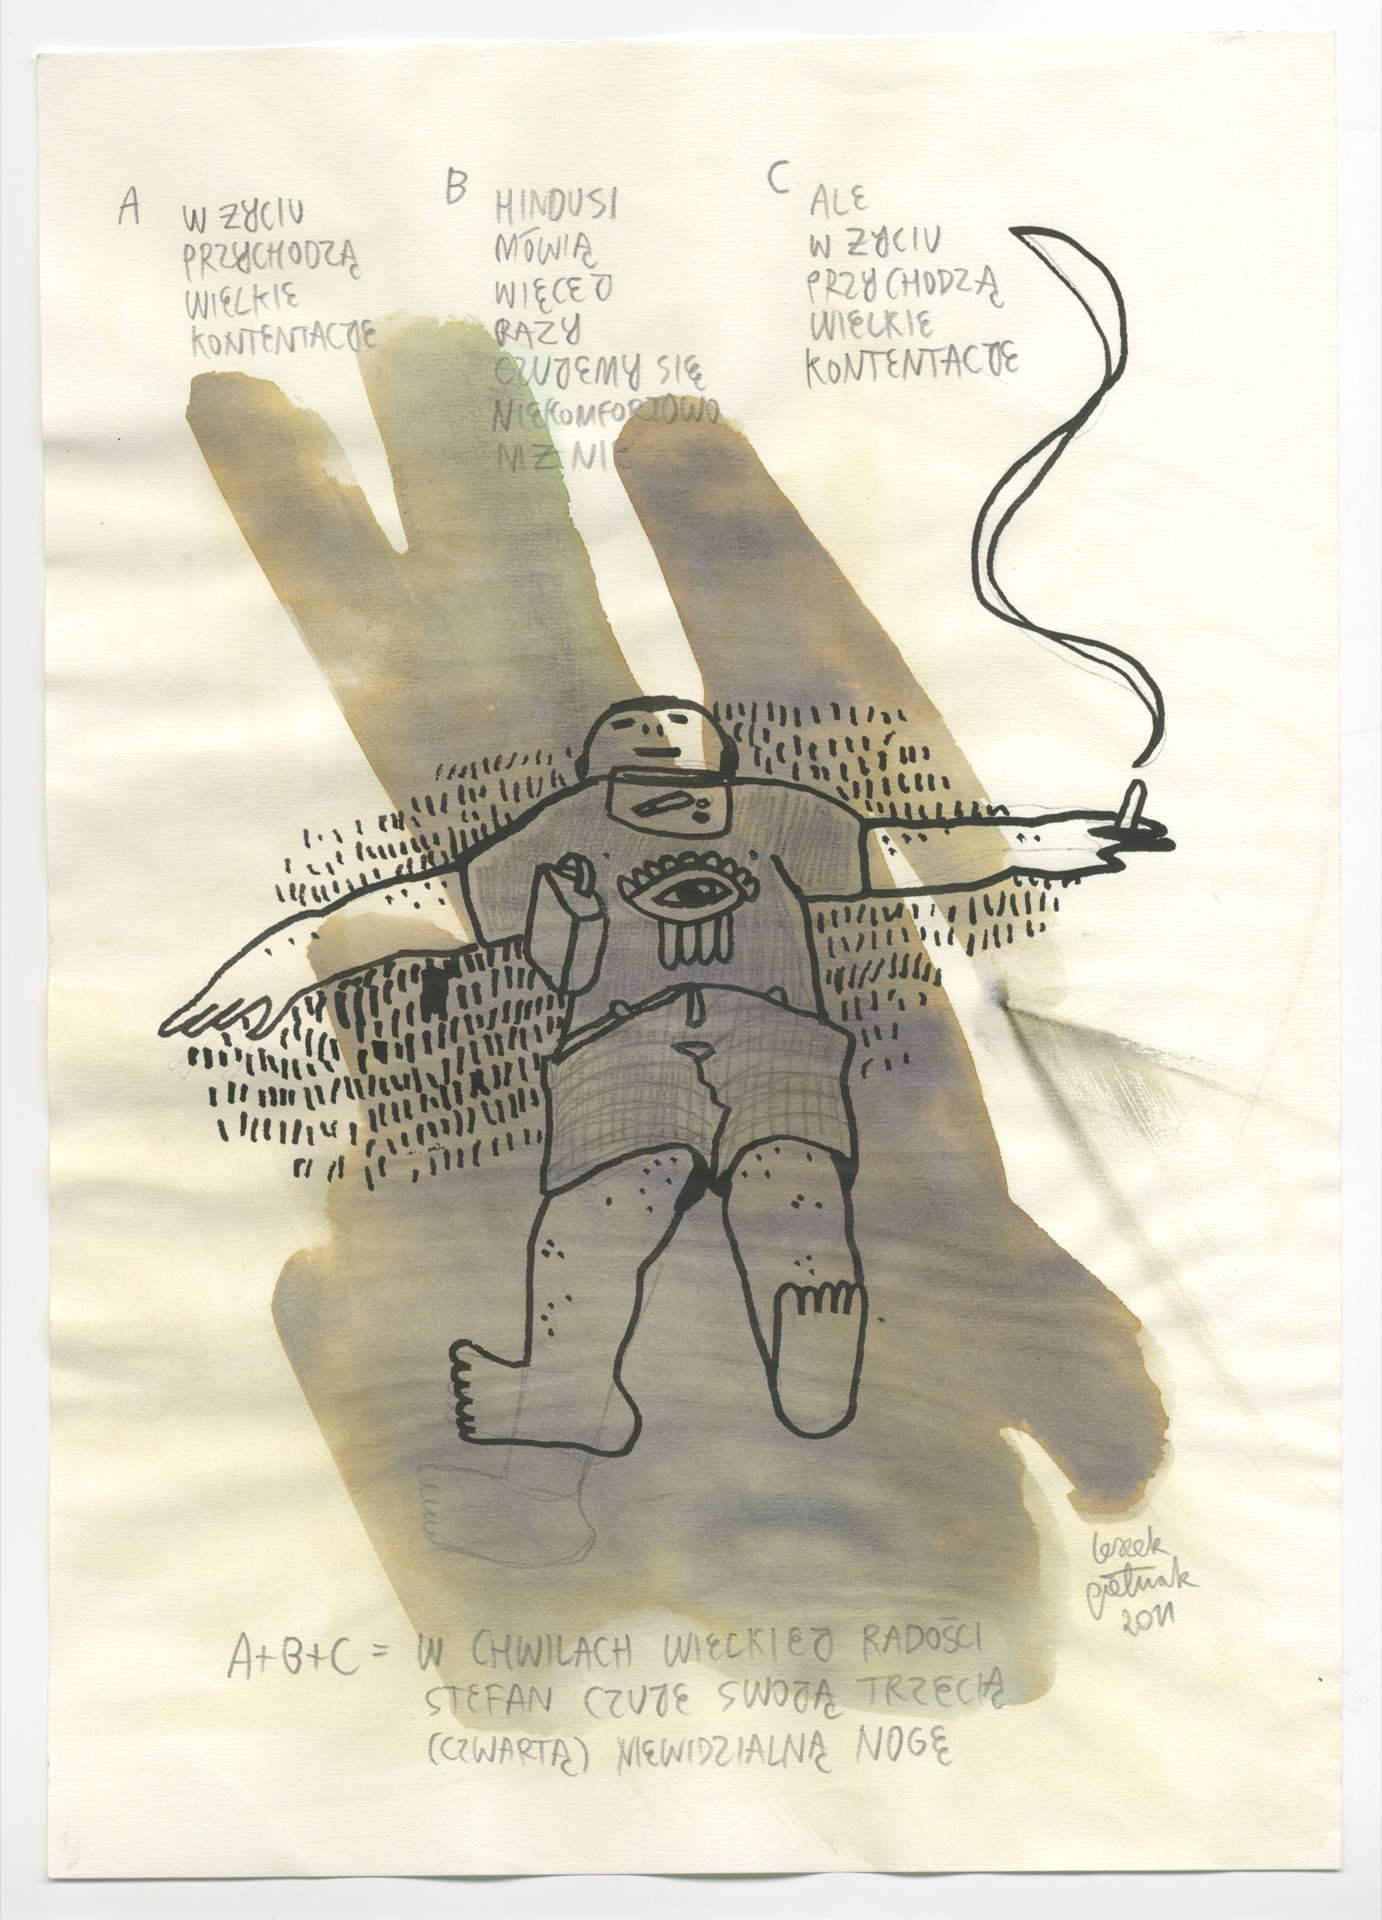 A
W ZYCIU
PRZYCHODZĄ
WIELKIE
KONTENTACJE
B
HINDUSI
MÓWIĄ
WIĘCEJ
RAZY
CZUJEMY SIĘ
NIEKOMFORTOWO
NIZ NIE
C
ALE
W ZYCIU
PRZYCHODZĄ
WIELKIE
KONTENTACJE
A+B+C = W CHWILACH WIELKIEJ RADOŚCI
STEFAN CZUJE SWOJĄ TRZECIĄ
(CZWARTĄ) NIEWIDZIALNĄ NOGĘ
leszek
2011